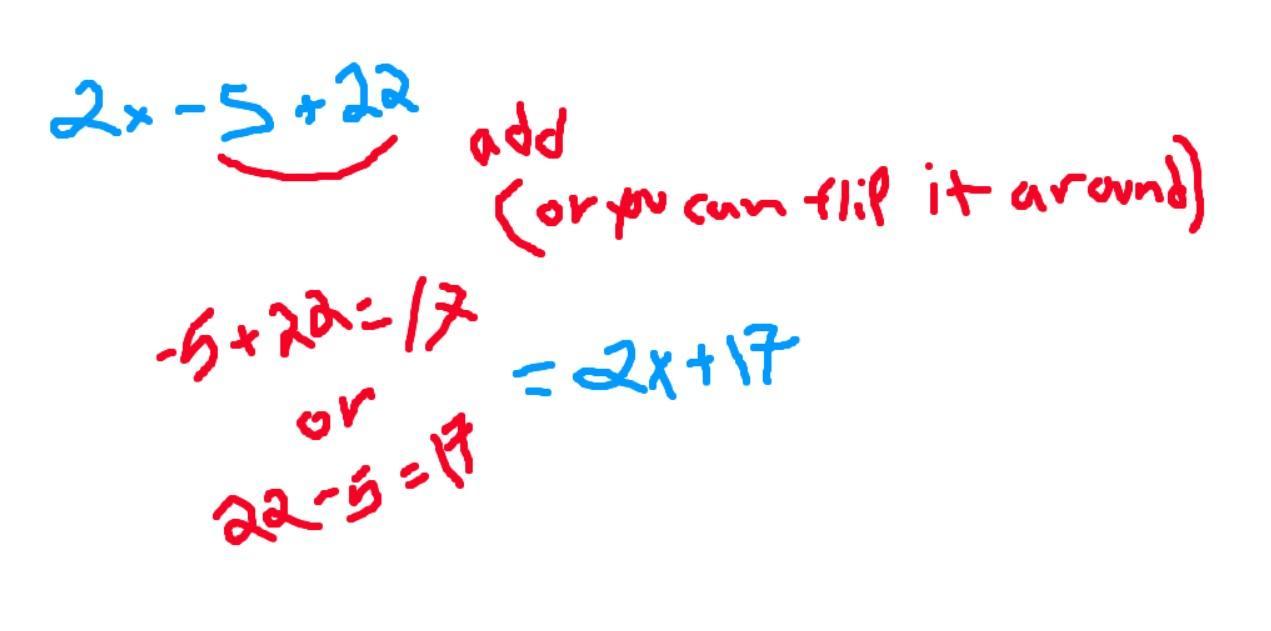 2x - 5 + 22
add
(or you can flip it around)
-5 + 22 = 17
or
22 - 5 = 17
= 2x + 17